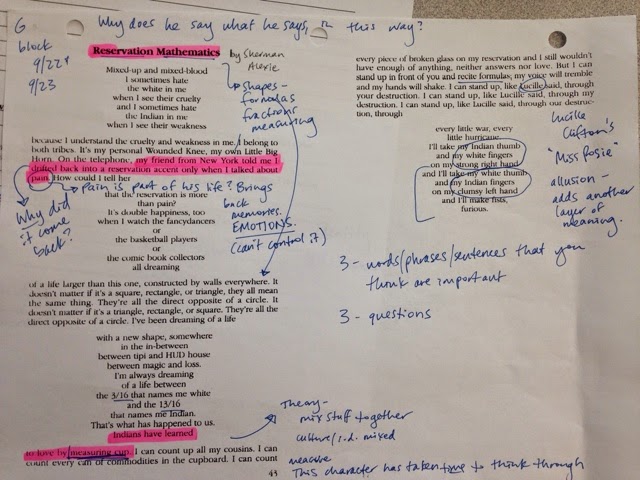 G
Why does he say what he says, in this way?
block
9/22+
9/23
Reservation Mathematics
by Sherman
Alexie
Mixed-up and mixed-blood
I sometimes hate
the white in me
when I see their cruelty
and I sometimes hate
the Indian in me
when I see their weakness
shapes-
formulas
fractions
measuring
because I understand the cruelty and weakness in me. I belong to
both tribes. It's my personal Wounded Knee, my own Little Big
Horn. On the telephone, my friend from New York told me I
drifted back into a reservation accent only when I talked about
pain. How could I tell her
pain is part of his life? Brings
back
memories.
EMOTIONS.
(can't control it)
Why did
it come
back?
that the reservation is more
than pain?
It's double happiness, too
when I watch the fancydancers
or
the basketball players
or
the comic book collectors
all dreaming
of a life larger than this one, constructed by walls everywhere. It
doesn't matter if it's a square, rectangle, or triangle, they all mean
the same thing. They're all the direct opposite of a circle. It
doesn't matter if it's a triangle, rectangle, or square. They're all the
direct opposite of a circle. I've been dreaming of a life
with a new shape, somewhere
in the in-between
between tipi and HUD house
between magic and loss.
I'm always dreaming
of a life between
the 3/16 that names me white
and the 13/16
that names me Indian.
That's what has happened to us.
Indians have learned
to love by measuring cup. I can count up all my cousins. I can
count every can of commodities in the cupboard. I can count
43
every piece of broken glass on my reservation and I still wouldn't
have enough of anything, neither answers nor love. But I can
stand up in front of you and recite formulas; my voice will tremble
and my hands will shake. I can stand up, like Lucille said, through
your destruction. I can stand up, like Lucille said, through my
destruction. I can stand up, like Lucille said, through our destruc-
tion, through
every little war, every
little hurricane.
I'll take my Indian thumb
and my white fingers
on my strong right hand
and I'll take my white thumb
and my Indian fingers
on my clumsy left hand
and I'll make fists,
furious.
Lucille
Clifton's
"Miss Rosie"
allusion -
adds another
layer of
meaning.
3 - words/phrases/sentences that you
think are important
3 - questions
Theory -
mix stuff together
culture/i.d. mixed
measure
This character has taken time to think through